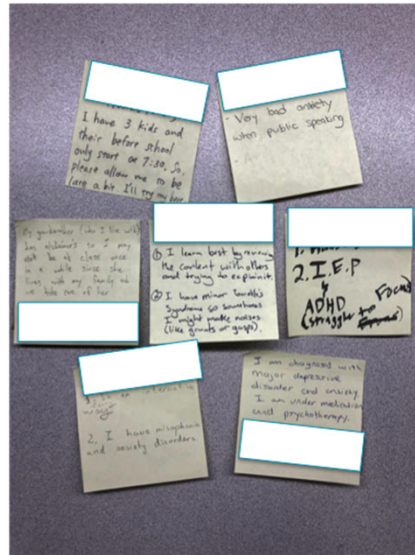 I have 3 kids and
their before school
only start at 7:30. So,
please allow me to be
late a bit. I'll try my best
- Very bad anxiety
when public speaking
My grandmother (who I live with)
has alzheimer's so I may
not be at class once
in a while since she
lives with my family and
we take care of her
① I learn best by reviewing
the content with others
and trying to explain it.
② I have minor Tourette's
Syndrome so sometimes
I might make noises.
(like grunts or gasps).
2. I.E.P
ADHD
(struggle to Focus)
2. I have misophonia
and anxiety disorders.
I am diagnosed with
major depressive
disorder and anxiety.
I am under medication
and psychotherapy.